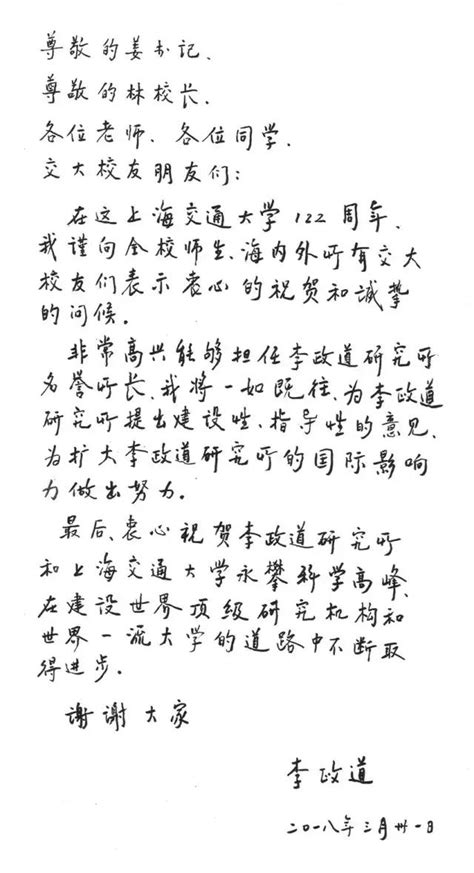 尊敬的姜书记、
尊敬的林校长、
各位老师、各位同学、
交大校友朋友们：
在这上海交通大学122周年、
我谨向全校师生、海内外所有交大
校友们表示衷心的祝贺和诚挚
的问候。
非常高兴能够担任李政道研究所
名誉所长、我将一如既往、为李政道
研究所提出建设性、指导性的意见、
为扩大李政道研究所的国际影响
力做出努力。
最后、衷心祝贺李政道研究所
和上海交通大学永攀科学高峰、
在建设世界顶级研究机构和
世界一流大学的道路中不断取
得进步。
谢谢大家
李政道
二〇一八年三月卅一日